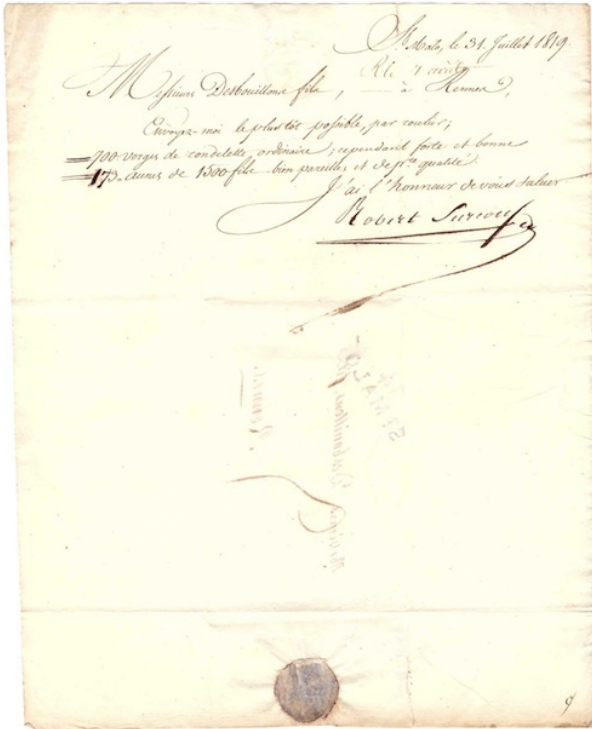 St. Malo, le 31. Juillet 1819.
Rle août
Messieurs Desbouillons fils, à Rennes,
Envoyez-moi le plustôt possible, par roulier;
700 verges de rondelette ordinaire; cependant forte et bonne
173 aunes de 1300 fils bien pareilles et de pre. qualité.
J'ai l'honneur de vous saluer
Robert Surcouf
ST MAL
Messieurs Desbouillons fils
Rennes